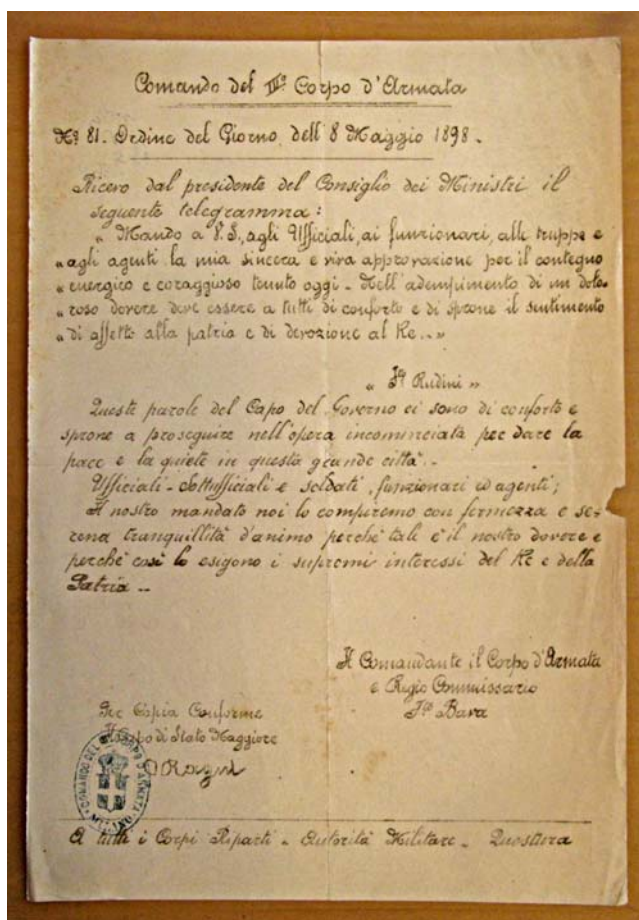 Comando del III° Corpo d'Armata
N° 81. Ordine del Giorno dell' 8 Maggio 1898.
Ricevo dal presidente del Consiglio dei Ministri il
seguente telegramma:
" Mando a V.S., agli Ufficiali, ai funzionari, alle truppe e
" agli agenti la mia sincera e viva approvazione per il contegno
" energico e coraggioso tenuto oggi - Nell'adempimento di un dolo-
roso dovere deve essere a tutti di conforto e di sprone il sentimento
" di affetto alla patria e di devozione al Re.. "
" F.to Rudinì "
Queste parole del Capo del Governo ci sono di conforto e
sprone a proseguire nell'opera incominciata per dare la
pace e la quiete in questa grande città..
Ufficiali - Sottufficiali e soldati, funzionari ed agenti;
Il nostro mandato noi lo compiremo con fermezza e se-
rena tranquillità d'animo perchè tale è il nostro dovere e
perchè così lo esigono i supremi interessi del Re e della
Patria..
Il Comandante il Corpo d'Armata
e Regio Commissario
F.to Bava
Per Copia Conforme
Il Capo di Stato Maggiore
COMANDO DEL CORPO D'ARMATA MILANO
A tutti i Corpi Riparti - Autorità Militare - Questura